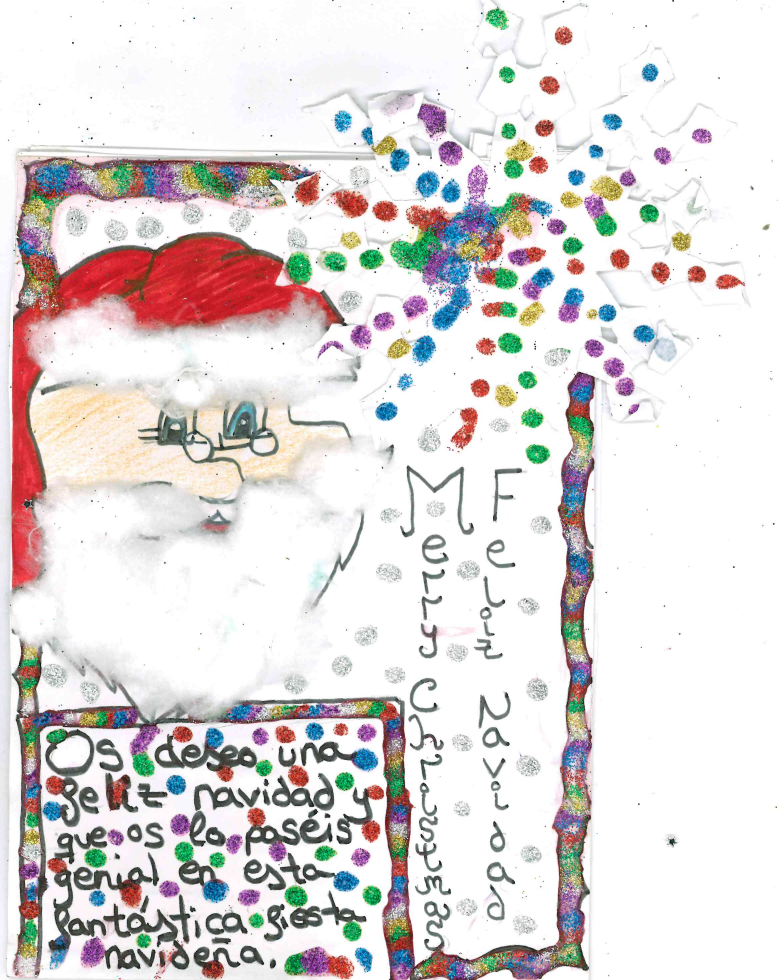 Merry Christmas
Feliz Navidad
Os deseo una
feliz navidad y
que os lo paséis
genial en esta
fantástica fiesta
navideña.